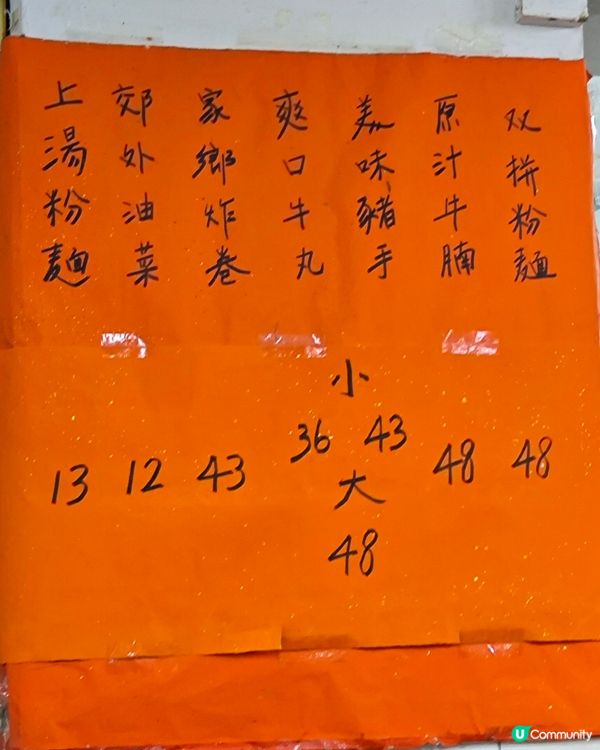 双拼粉麵
原汁牛腩
美味豬手
爽口牛丸
家鄉炸卷
郊外油菜
上湯粉麵
小
36 43
大
48
48
48
43
12
13
U Community